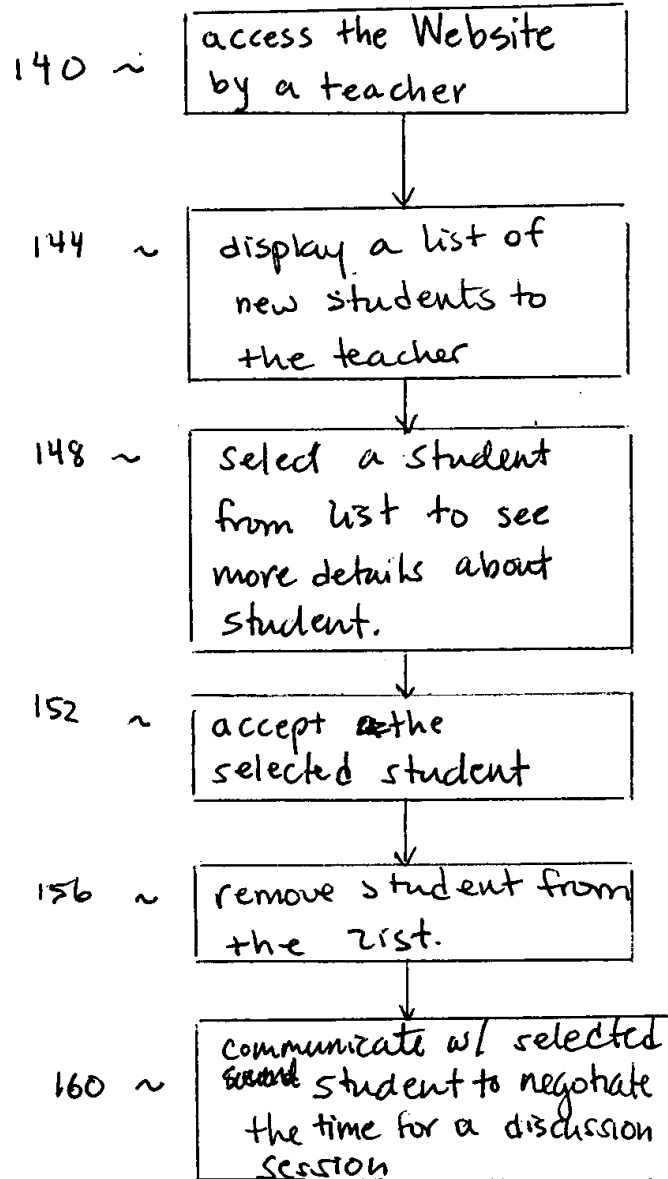 140 ~ access the Website
by a teacher
144 ~ display a list of
new students to
the teacher
148 ~ select a student
from list to see
more details about
student.
152 ~ accept the
selected student
156 ~ remove student from
the list.
160 ~ communicate w/ selected
student to negotiate
the time for a discussion
session